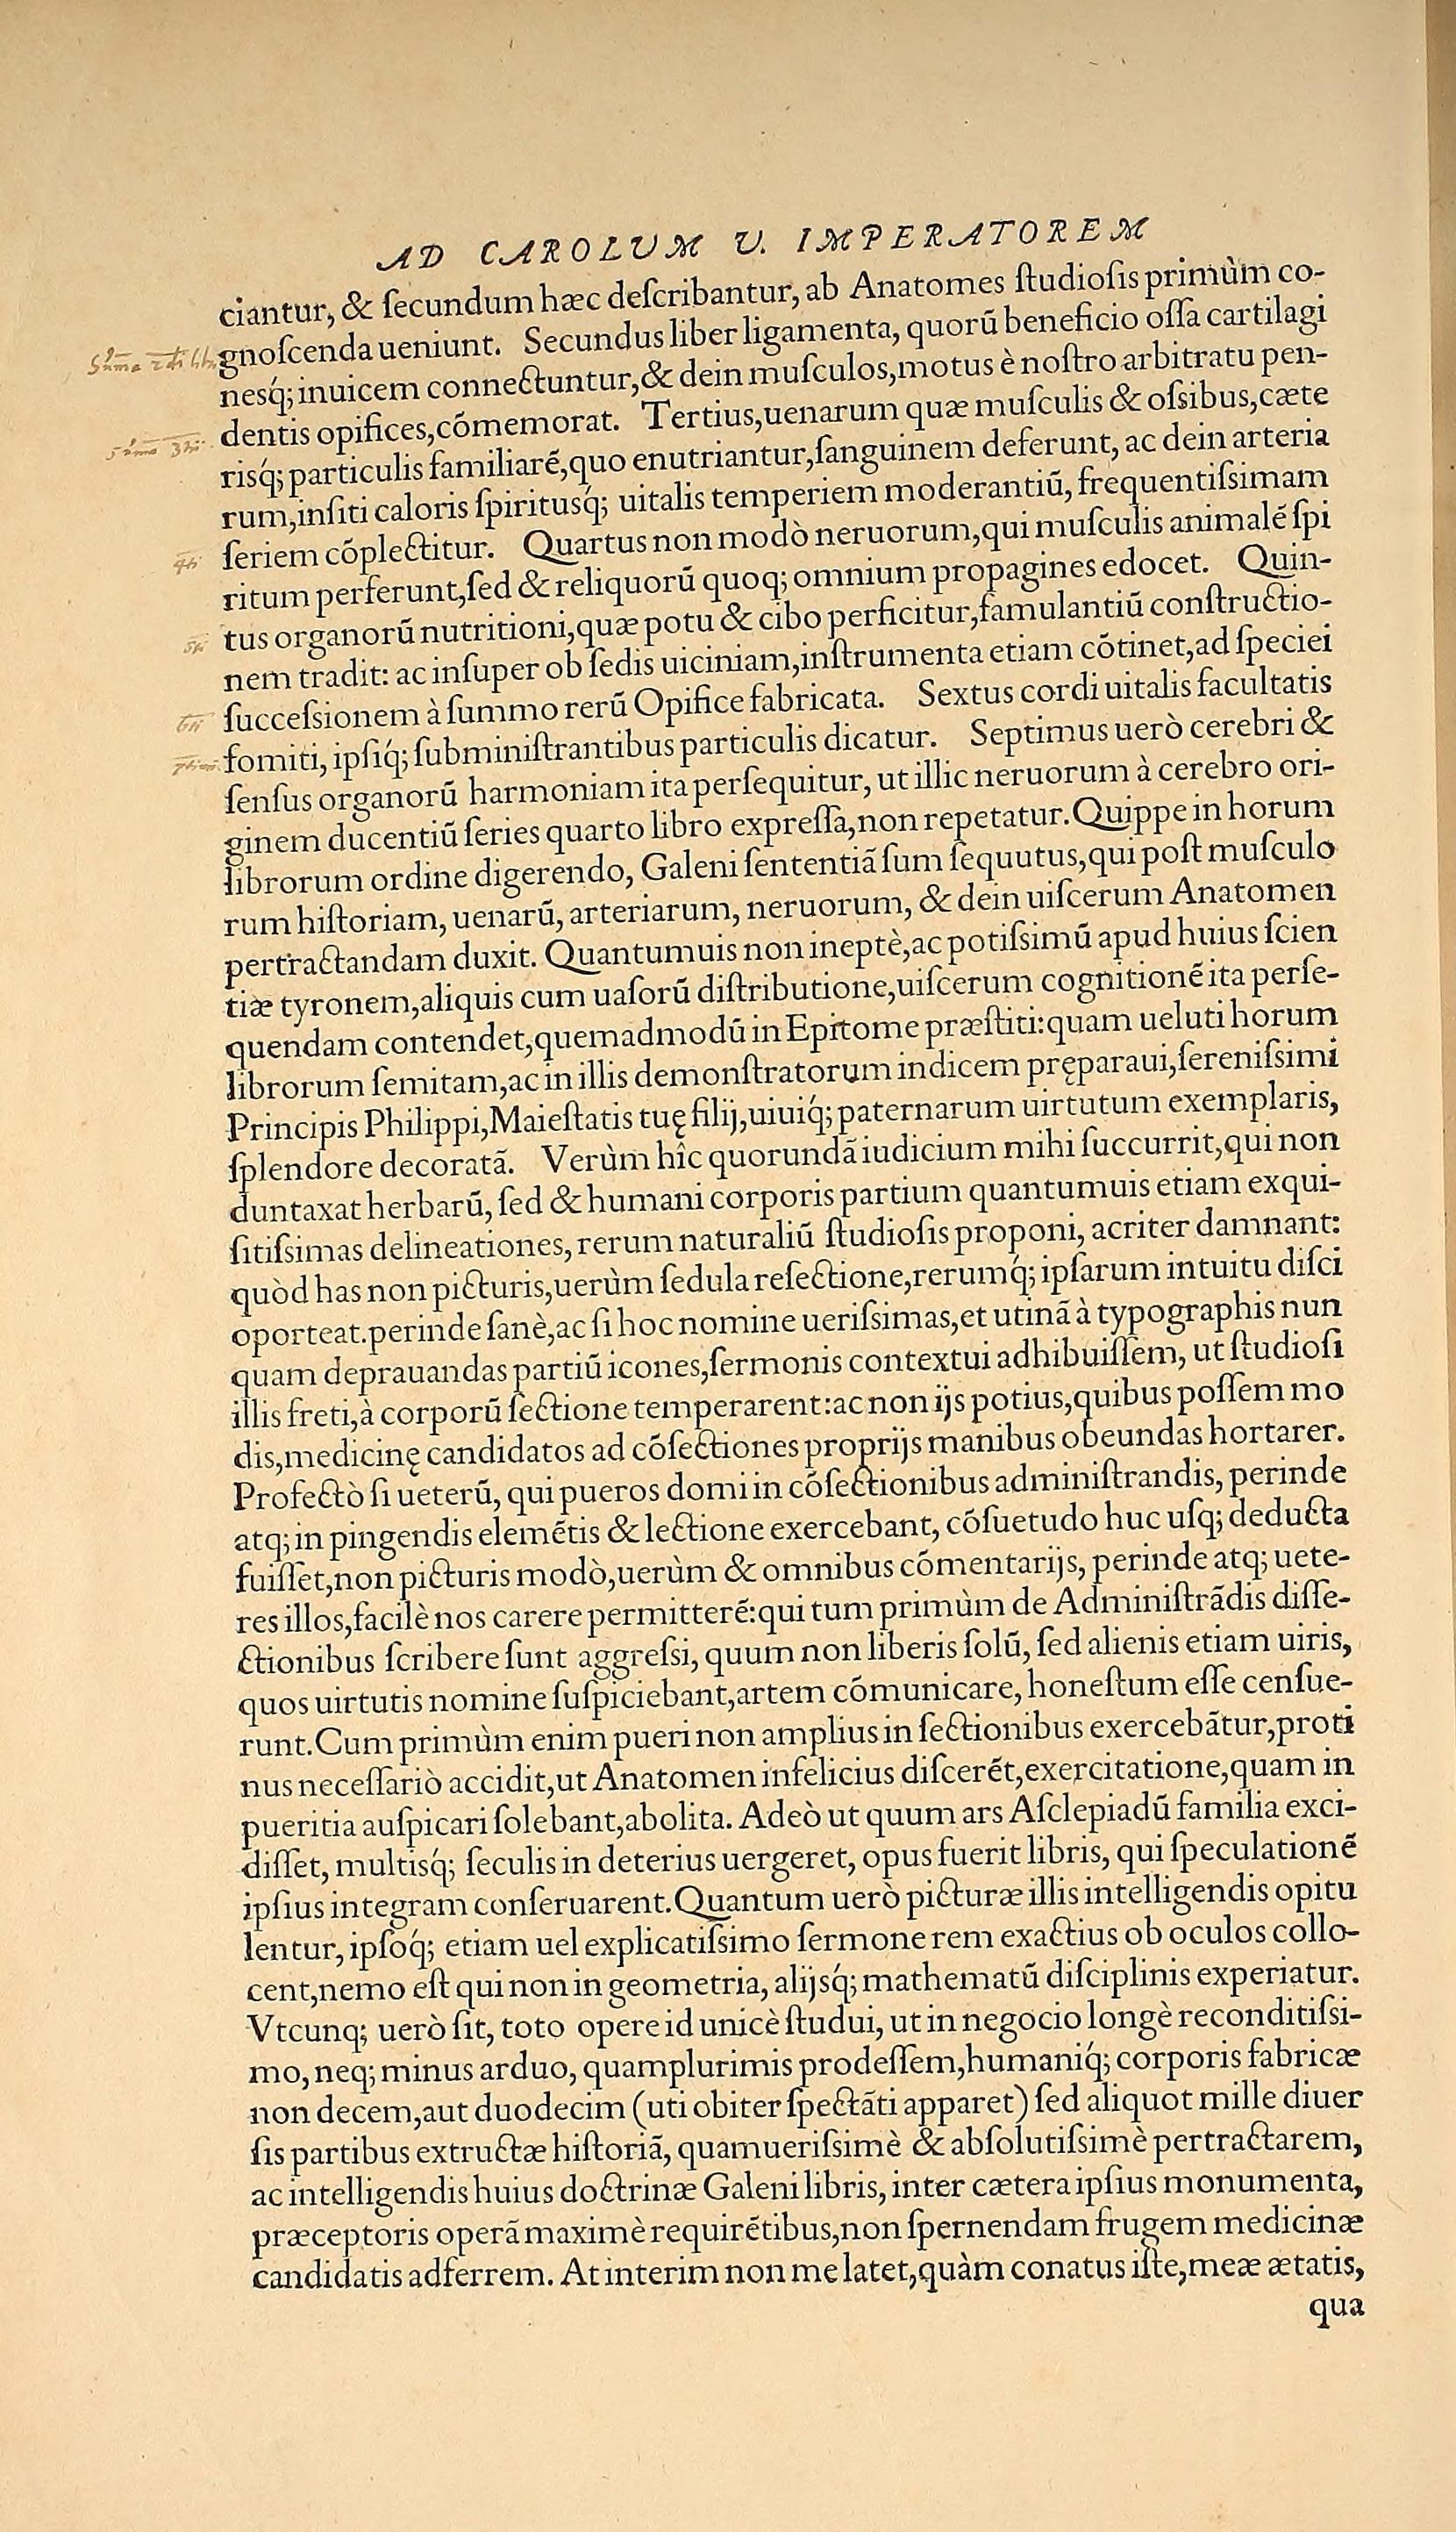 AD CAROLUM V. IMPERATOREM
ciantur, & ſecundum hæc deſcribantur, ab Anatomes ſtudioſis primùm co-
gnoſcenda ueniunt. Secundus liber ligamenta, quorũ beneficio oſſa cartilagi
nesq́; inuicem connectuntur, & dein muſculos, motus è noſtro arbitratu pen-
dentis opifices, cõmemorat. Tertius, uenarum quæ muſculis & oſsibus, cæte
risq́; particulis familiarẽ, quo enutriantur, ſanguinem deferunt, ac dein arteria
rum, inſiti caloris ſpiritusq́; uitalis temperiem moderantiũ, frequentiſsimam
ſeriem cõplectitur. Quartus non modò neruorum, qui muſculis animalẽ ſpi
ritum perferunt, ſed & reliquorũ quoq; omnium propagines edocet. Quin-
tus organorũ nutritioni, quæ potu & cibo perficitur, famulantiũ conſtructio-
nem tradit: ac inſuper ob ſedis uiciniam, inſtrumenta etiam cõtinet, ad ſpeciei
ſucceſsionem à ſummo rerũ Opifice fabricata. Sextus cordi uitalis facultatis
fomiti, ipſiq́; ſubminiſtrantibus particulis dicatur. Septimus uerò cerebri &
ſenſus organorũ harmoniam ita perſequitur, ut illic neruorum à cerebro ori-
ginem ducentiũ ſeries quarto libro expreſſa, non repetatur. Quippe in horum
librorum ordine digerendo, Galeni ſententiã ſum ſequutus, qui poſt muſculo
rum hiſtoriam, uenarũ, arteriarum, neruorum, & dein uiſcerum Anatomen
pertractandam duxit. Quantumuis non ineptè, ac potiſsimũ apud huius ſcien
tiæ tyronem, aliquis cum uaſorũ diſtributione, uiſcerum cognitionẽ ita perſe-
quendam contendet, quemadmodũ in Epitome præſtiti: quam ueluti horum
librorum ſemitam, ac in illis demonſtratorum indicem pręparaui, ſereniſsimi
Principis Philippi, Maieſtatis tuę filij, uiuiq́; paternarum uirtutum exemplaris,
ſplendore decoratã. Verùm hîc quorundã iudicium mihi ſuccurrit, qui non
duntaxat herbarũ, ſed & humani corporis partium quantumuis etiam exqui-
ſitiſsimas delineationes, rerum naturaliũ ſtudioſis proponi, acriter damnant:
quòd has non picturis, uerùm ſedula reſectione, rerumq́; ipſarum intuitu diſci
oporteat. perinde ſanè, ac ſi hoc nomine ueriſsimas, et utinã à typographis nun
quam deprauandas partiũ icones, ſermonis contextui adhibuiſſem, ut ſtudioſi
illis freti, à corporũ ſectione temperarent: ac non ijs potius, quibus poſſem mo
dis, medicinę candidatos ad cõſectiones proprijs manibus obeundas hortarer.
Profectò ſi ueterũ, qui pueros domi in cõſectionibus adminiſtrandis, perinde
atq; in pingendis elemẽtis & lectione exercebant, cõſuetudo huc uſq; deducta
fuiſſet, non picturis modò, uerùm & omnibus cõmentarijs, perinde atq; uete-
res illos, facilè nos carere permitterẽ: qui tum primùm de Adminiſtrãdis diſſe-
ctionibus ſcribere ſunt aggreſsi, quum non liberis ſolũ, ſed alienis etiam uiris,
quos uirtutis nomine ſuſpiciebant, artem cõmunicare, honeſtum eſſe cenſue-
runt. Cum primùm enim pueri non amplius in ſectionibus exercebãtur, proti
nus neceſſariò accidit, ut Anatomen infelicius diſcerẽt, exercitatione, quam in
pueritia auſpicari ſolebant, abolita. Adeò ut quum ars Aſclepiadũ familia exci-
diſſet, multisq́; ſeculis in deterius uergeret, opus fuerit libris, qui ſpeculationẽ
ipſius integram conſeruarent. Quantum uerò picturæ illis intelligendis opitu
lentur, ipſoq́; etiam uel explicatiſsimo ſermone rem exactius ob oculos collo-
cent, nemo eſt qui non in geometria, alijsq́; mathematũ diſciplinis experiatur.
Vtcunq; uerò ſit, toto opere id unicè ſtudui, ut in negocio longè reconditiſsi-
mo, neq; minus arduo, quamplurimis prodeſſem, humaniq́; corporis fabricæ
non decem, aut duodecim (uti obiter ſpectãti apparet) ſed aliquot mille diuer
ſis partibus extructæ hiſtoriã, quamueriſsimè & abſolutiſsimè pertractarem,
ac intelligendis huius doctrinæ Galeni libris, inter cætera ipſius monumenta,
præceptoris operã maximè requirẽtibus, non ſpernendam frugem medicinæ
candidatis adferrem. At interim non me latet, quàm conatus iſte, meæ ætatis,
qua